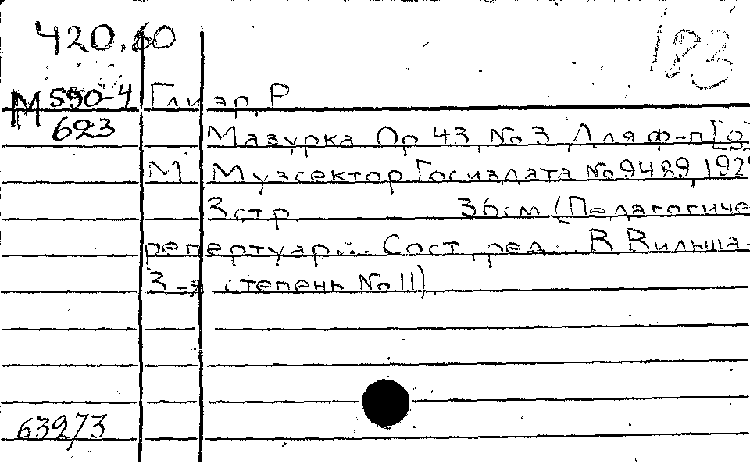 420.60
183
М 590-4
623
Глиэр, Р
Мазурка Ор 43 No 3 Для ф-п
М Музсектор Госиздата No 9489, 192
3 стр. 36см (Педагогиче
репертуар... Сост. ред. В Вильша
3-я степень No 11).
63973